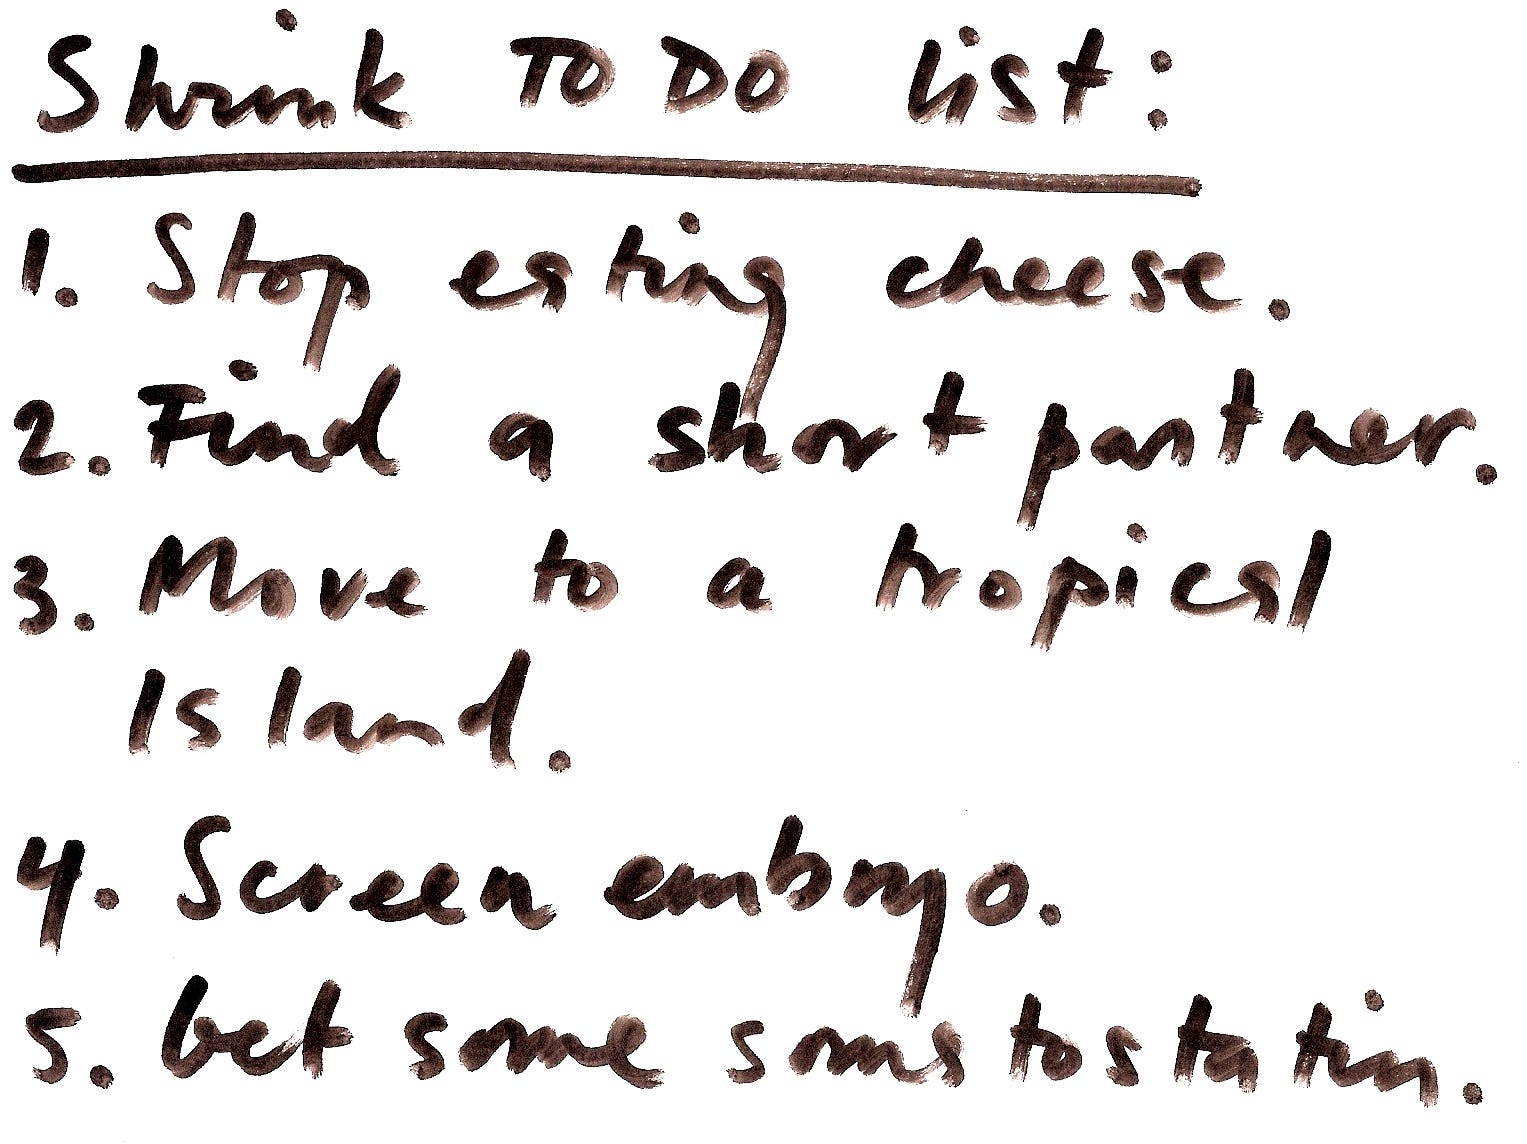 Shrink TO DO list:
1. Stop eating cheese.
2. Find a short partner.
3. Move to a tropical
Island.
4. Screen embryo.
5. Get some somatostatin.